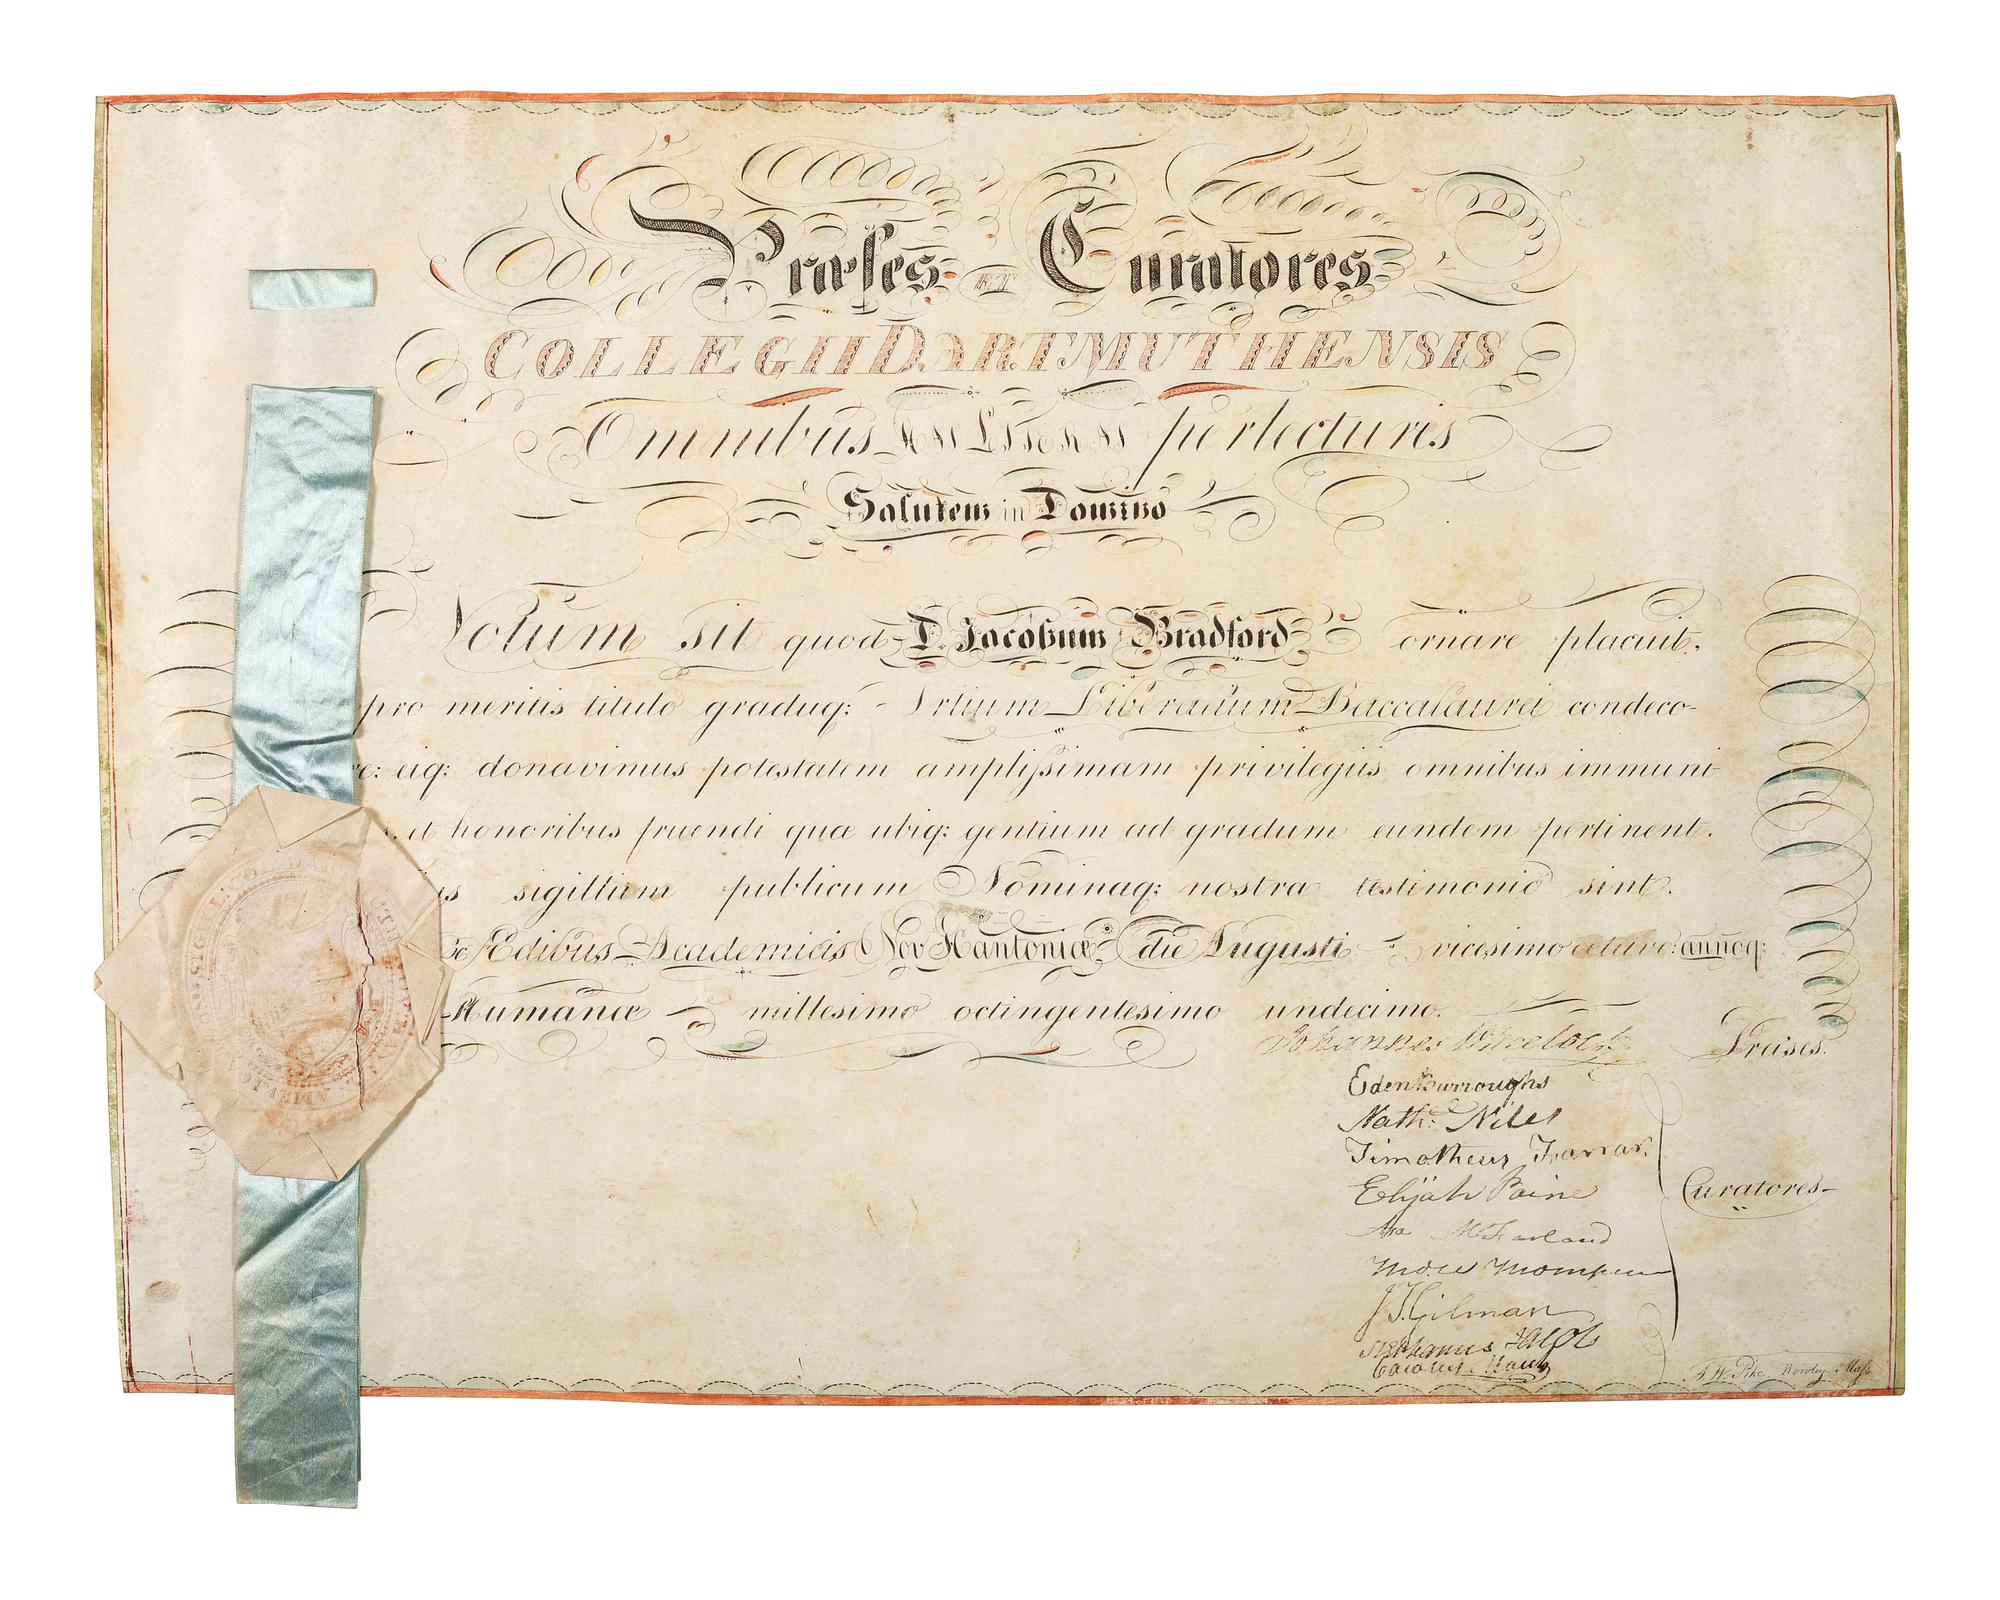 Præſes ET Curatores
COLLEGII DARTMUTHENSIS
Omnibus HAS LITERAS perlecturis
Salutem in Domino
Notum sit quod D. Jacobum Bradford ornare placuit,
pro meritis titulo graduq: Artium Liberalium Baccalaurei condeco-
re: eiq: donavimus potestatem ampliſsimam privilegiis omnibus immuni-
s. et honoribus fruendi quæ ubiq: gentium ad gradum eundem pertinent.
us sigillum publicum Nominaq: nostra testimonio sint.
Ædibus Academicis Nov Hantoniæ die Augusti vicesimo octavo: annoq:
Humanæ millesimo octingentesimo undecimo.
Johannes Wheelock Præses.
Eden Burroughs
Nathl. Niles
Timotheus Farrar.
Elijah Paine
Curatores
Asa McFarland
J.T. Gilman
Stephanus Jacob
Carolus Marsh
A. W. Pike Rowley Maſs